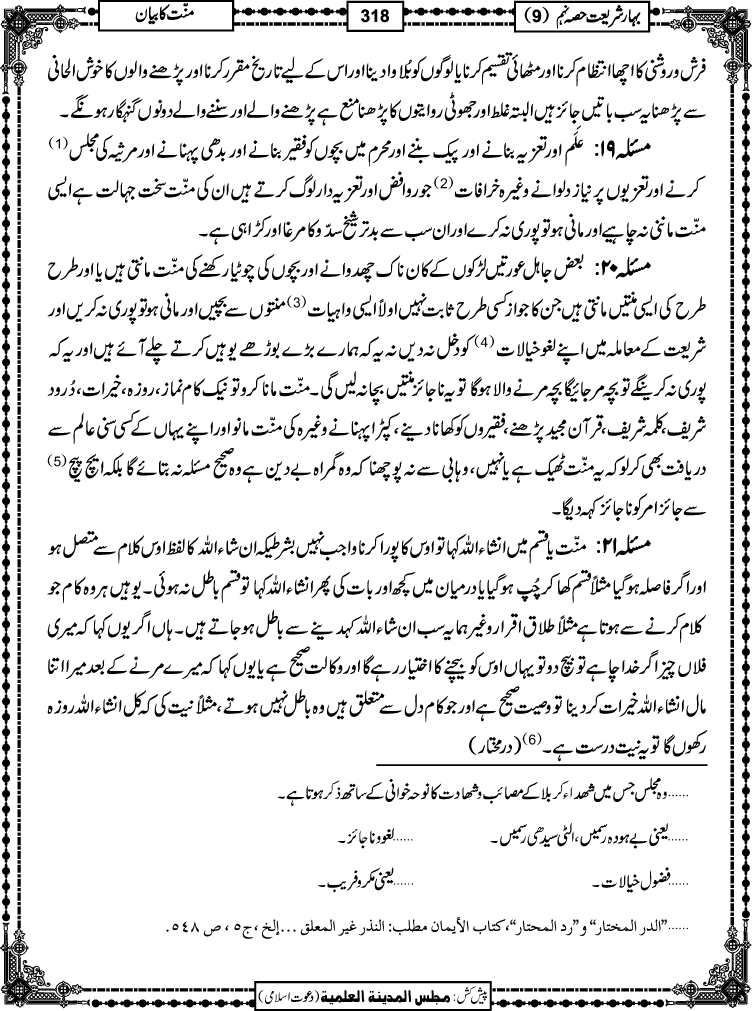 بہار شریعت حصہ نہم (9)
318
منّت کا بیان
فرش و روشنی کا اچھا انتظام کرنا اور مٹھائی تقسیم کرنا یا لوگوں کو بُلاوا دینا اور اس کے لیے تاریخ مقرر کرنا اور پڑھنے والوں کا خوش الحانی
سے پڑھنا یہ سب باتیں جائز ہیں البتہ غلط اور جھوٹی روایتوں کا پڑھنا منع ہے پڑھنے والے اور سننے والے دونوں گنہگار ہونگے۔
مسئلہ ۱۹: عَلَم اور تعزیہ بنانے اور پیک بننے اور محرم میں بچوں کو فقیر بنانے اور بدھی پہنانے اور مرثیہ کی مجلس (1)
کرنے اور تعزیوں پر نیاز دلوانے وغیرہ خرافات (2) جو روافض اور تعزیہ دار لوگ کرتے ہیں ان کی منّت سخت جہالت ہے ایسی
منّت ماننی نہ چاہیے اور مانی ہو تو پوری نہ کرے اور ان سب سے بدتر شیخ سدّو کا مرغا اور کڑاہی ہے۔
مسئلہ ۲۰: بعض جاہل عورتیں لڑکوں کے کان ناک چھدوانے اور بچوں کی چوٹیا رکھنے کی منّت مانتی ہیں یا اور طرح
طرح کی ایسی منتیں مانتی ہیں جن کا جواز کسی طرح ثابت نہیں اولاً ایسی واہیات (3) منتوں سے بچیں اور مانی ہو تو پوری نہ کریں اور
شریعت کے معاملہ میں اپنے لغو خیالات (4) کو دخل نہ دیں نہ یہ کہ ہمارے بڑے بوڑھے یوہیں کرتے چلے آئے ہیں اور یہ کہ
پوری نہ کرینگے تو بچہ مر جائیگا بچہ مرنے والا ہوگا تو یہ ناجائز منتیں بچا نہ لیں گی۔ منّت مانا کرو تو نیک کام نماز، روزہ، خیرات، دُرود
شریف، کلمہ شریف، قرآن مجید پڑھنے، فقیروں کو کھانا دینے، کپڑا پہنانے وغیرہ کی منّت مانو اور اپنے یہاں کے کسی سنی عالم سے
دریافت بھی کر لو کہ یہ منّت ٹھیک ہے یا نہیں، وہابی سے نہ پوچھنا کہ وہ گمراہ بے دین ہے وہ صحیح مسئلہ نہ بتائے گا بلکہ ایچ پیچ (5)
سے جائز امر کو ناجائز کہہ دیگا۔
مسئلہ ۲۱: منّت یا قسم میں انشاء اللہ کہا تو اوس کا پورا کرنا واجب نہیں بشرطیکہ ان شاء اللہ کا لفظ اوس کلام سے متصل ہو
اور اگر فاصلہ ہو گیا مثلاً قسم کھا کر چُپ ہو گیا یا درمیان میں کچھ اور بات کی پھر انشاء اللہ کہا تو قسم باطل نہ ہوئی۔ یوہیں ہر وہ کام جو
کلام کرنے سے ہوتا ہے مثلاً طلاق اقرار وغیرہما یہ سب ان شاء اللہ کہدینے سے باطل ہو جاتے ہیں۔ ہاں اگر یوں کہا کہ میری
فلاں چیز اگر خدا چاہے تو بیچ دو تو یہاں اوس کو بیچنے کا اختیار رہے گا اور وکالت صحیح ہے یا یوں کہا کہ میرے مرنے کے بعد میرا اتنا
مال انشاء اللہ خیرات کر دینا تو وصیت صحیح ہے اور جو کام دل سے متعلق ہیں وہ باطل نہیں ہوتے، مثلاً نیت کی کہ کل انشاء اللہ روزہ
رکھوں گا تو یہ نیت درست ہے۔ (6) (درمختار)
......وہ مجلس جس میں شہداء کربلا کے مصائب و شہادت کا نوحہ خوانی کے ساتھ ذکر ہوتا ہے۔
......یعنی بے ہودہ رسمیں، الٹی سیدھی رسمیں۔ ......لغو و ناجائز۔
......فضول خیالات۔ ......یعنی مکر و فریب۔
......"الدر المختار" و"رد المحتار"، کتاب الأیمان مطلب: النذر غیر المعلق ...إلخ، ج٥، ص ٥٤٨.
پیش کش: مجلس المدینۃ العلمیۃ (دعوت اسلامی)